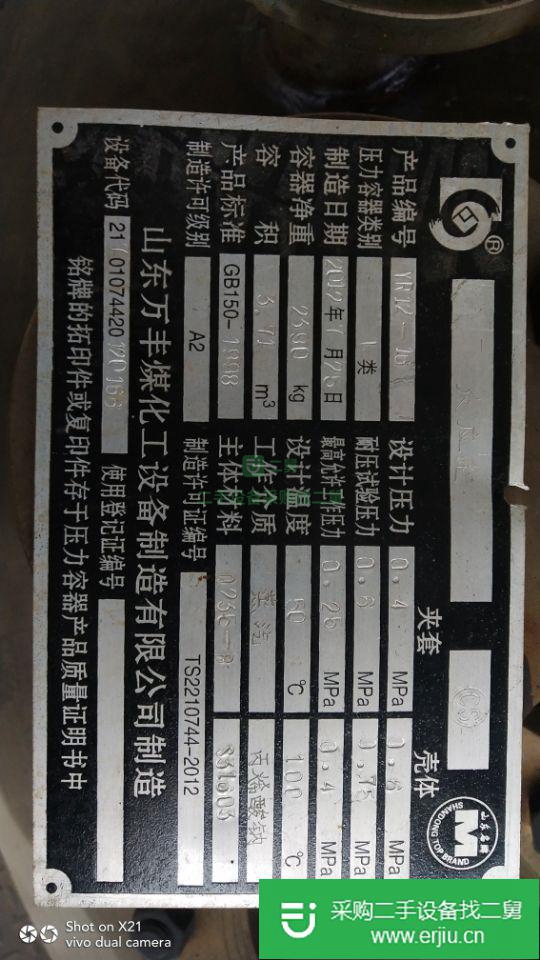 ®
反应釜
夹套
壳体
产品编号
设计压力 0.4 MPa 0.6 MPa
压力容器类别 1类
耐压试验压力 0.6 MPa 0.75 MPa
制造日期 2012年7月25日
最高允许工作压力 0.25 MPa 0.4 MPa
容器净重 2390 kg
设计温度 ℃ 100 ℃
容积 3.71 m³
工作介质 蒸汽 丙烯酸钠
产品标准 GB150-1998
主体材料 Q235-B
制造许可级别 A2
制造许可证编号 TS2210744-2012
山东万丰煤化工设备制造有限公司制造
设备代码
使用登记证编号
铭牌的拓印件或复印件存于压力容器产品质量证明书中
山东名牌
M
SHANDONG TOP BRAND
Shot on X21
vivo dual camera
采购二手设备找二舅
www.erjiu.cn